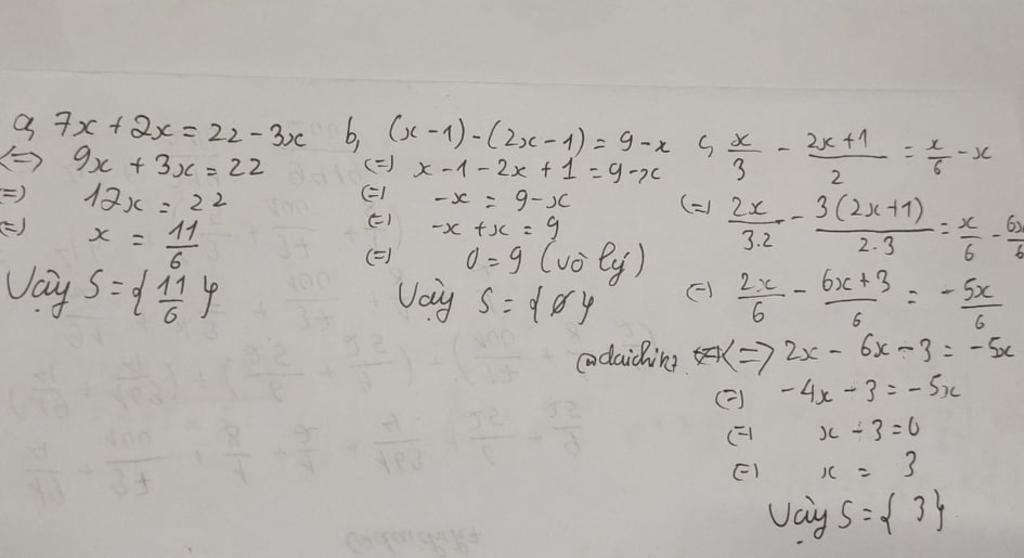 a, 7x + 2x = 22 - 3x
<=> 9x + 3x = 22
=) 12x = 22
=) x = 11/6
Vậy S = { 11/6 }
b, (x - 1) - (2x - 1) = 9 - x
(=) x - 1 - 2x + 1 = 9 - x
(=) -x = 9 - x
(=) -x + x = 9
(=) 0 = 9 (vô lý)
Vậy S = { ∅ }
c, x/3 - (2x + 1)/2 = x/6 - x
(=) 2x/3.2 - 3(2x + 1)/2.3 = x/6 - 6x/6
(=) 2x/6 - (6x + 3)/6 = -5x/6
@daichikt <=> 2x - 6x - 3 = -5x
(=) -4x - 3 = -5x
(=) x - 3 = 0
(=) x = 3
Vậy S = { 3 }